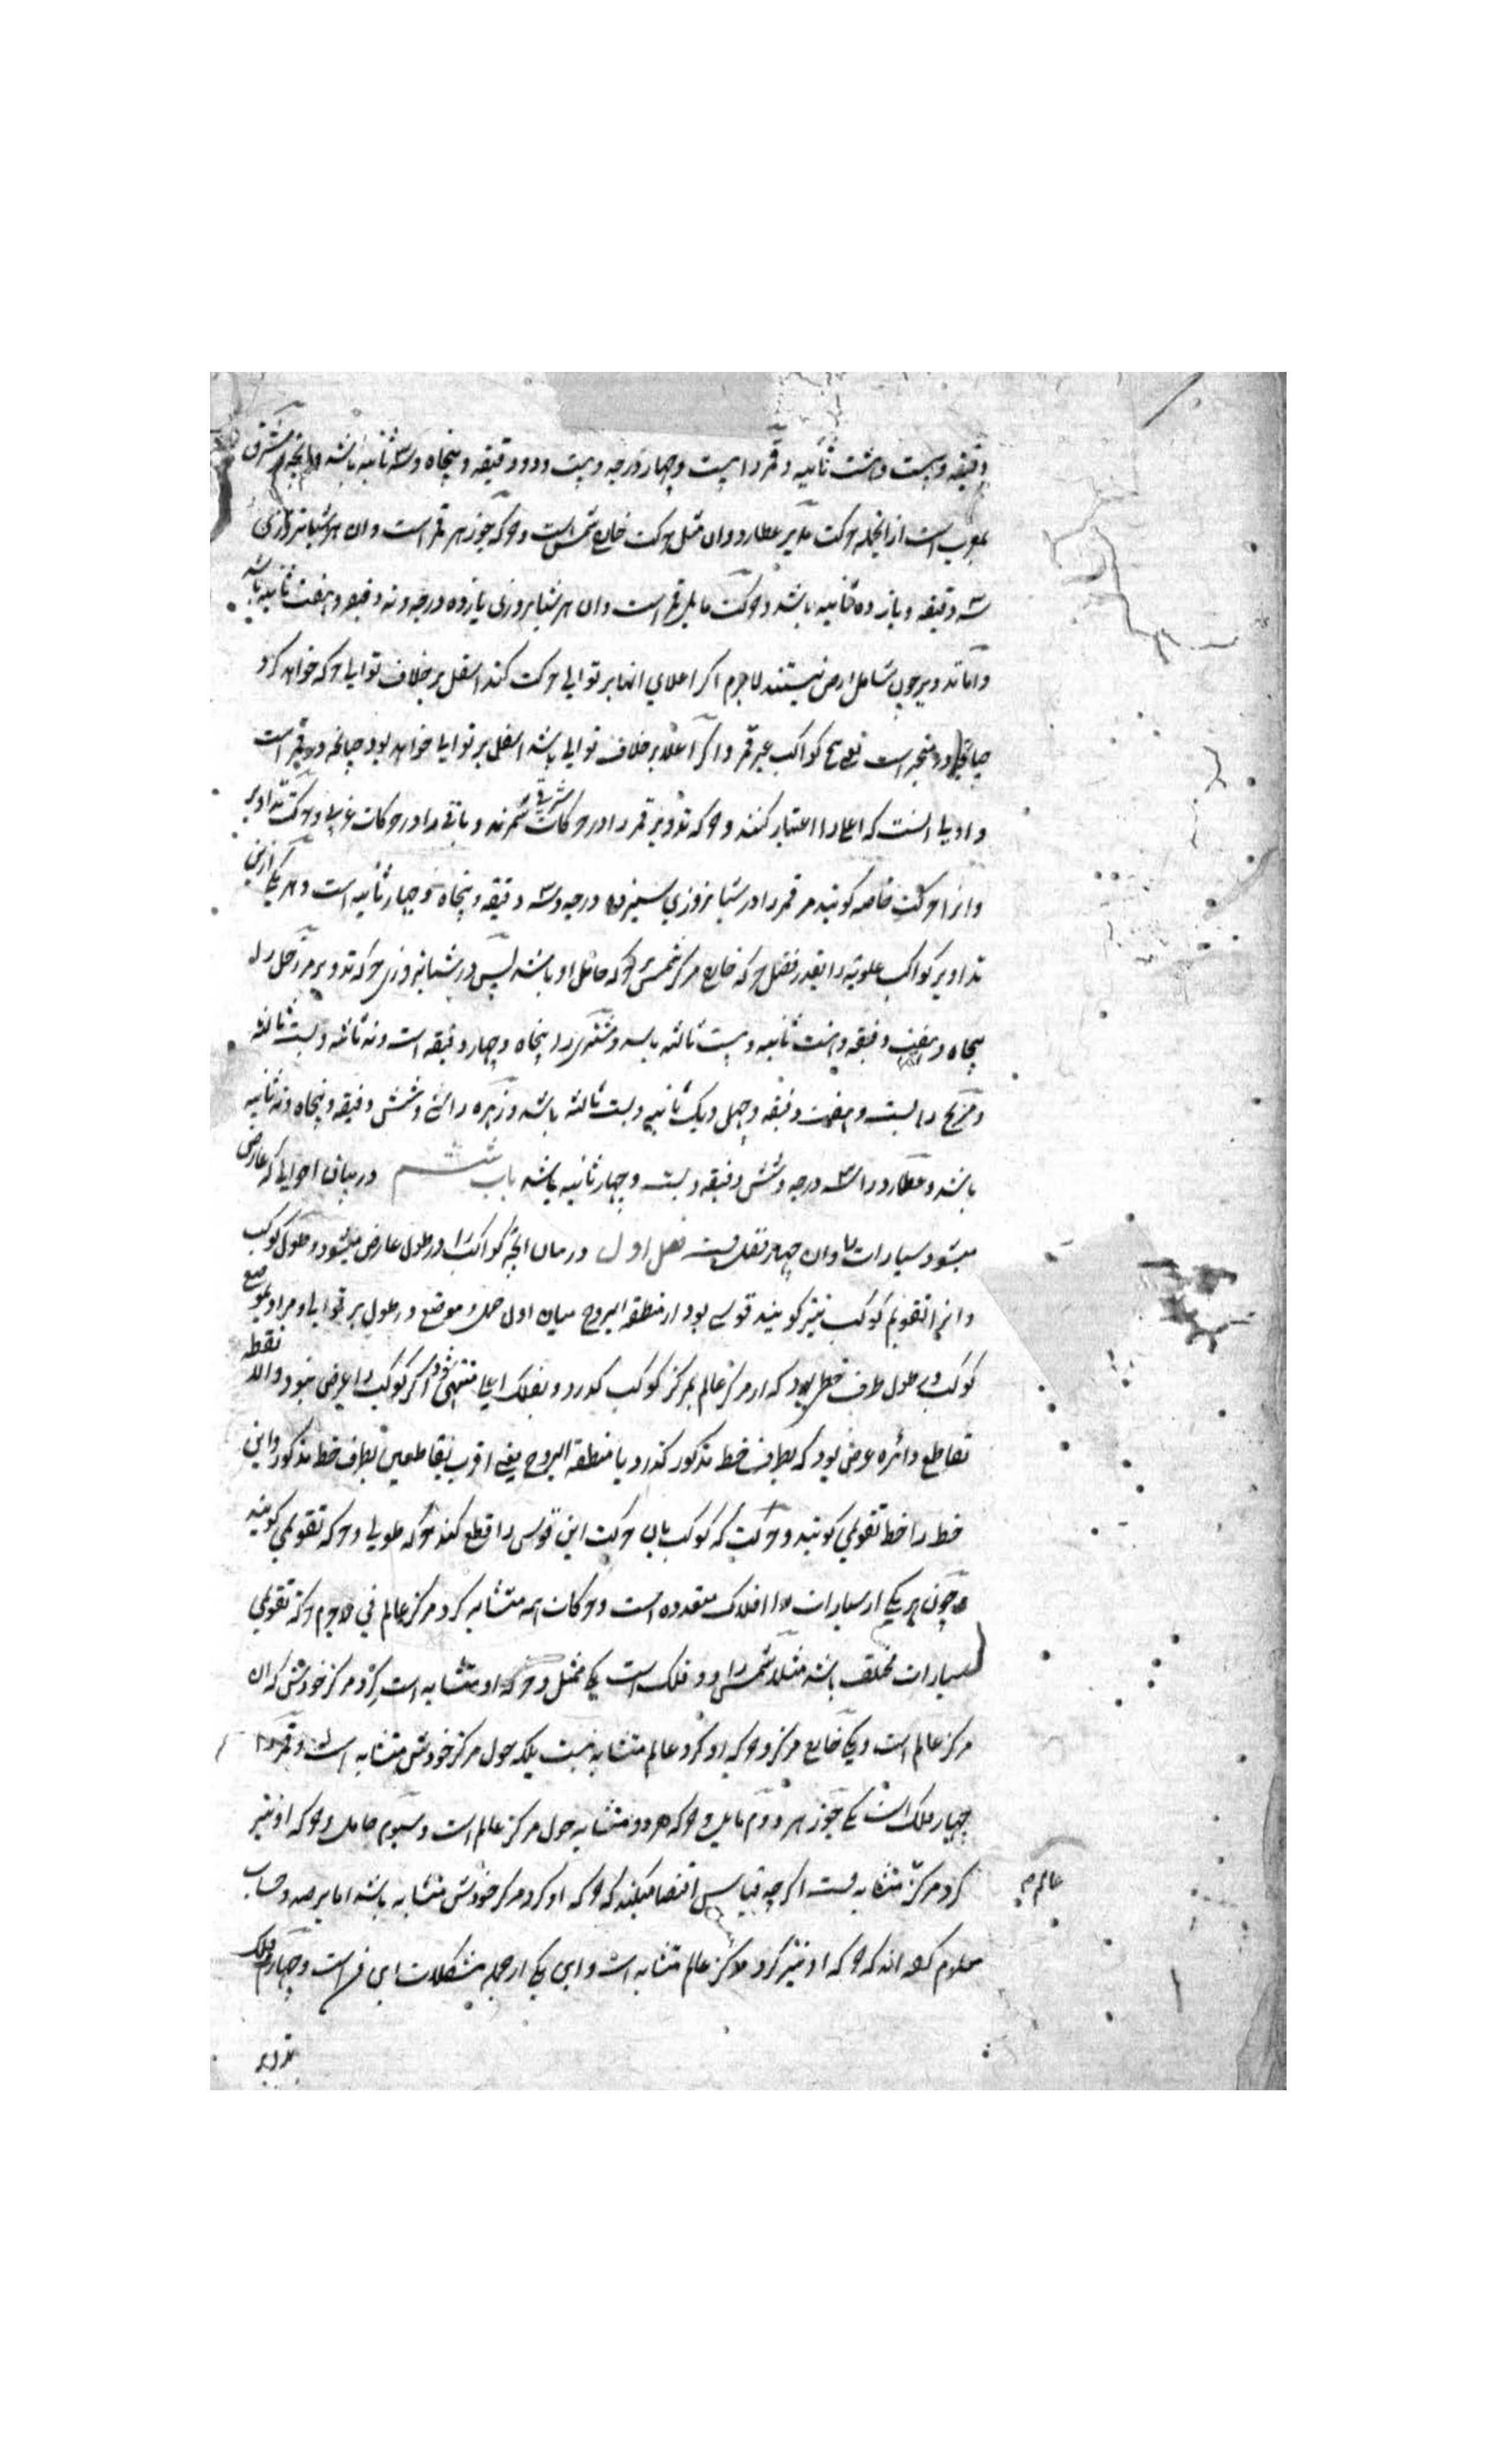 دقیقه و بیست و هشت ثانیه و قمر را بیست و چهار درجه و بیست و دو دقیقه و پنجاه و سه ثانیه باشد و آنچه از مشرق
بمغرب است از انجمله حرکت مدیر عطارد و ان مثل حرکت خارج شمس است و حرکه جوزهر قمر است و ان هر شبانروزی
سه دقیقه و یازده ثانیه باشد و حرکت مایل قمر است و ان هر شبانروزی یازده درجه و نه دقیقه و هفت ثانیه باشد
و اما تدویر چون شامل ارض نیستند لاجرم اگر اعلای انها بر توالی حرکت کند اسفل بر خلاف توالی حرکه خواهد کرد
چنانچه در متحیره است یعنی کواکب غیر قمر و اگر اعلا بر خلاف توالی باشد اسفل بر توالی خواهد بود چنانچه در قمر است
و اولی انست که اعلا را اعتبار کنند و حرکه تدویر قمر را در حرکات شرقی شمرند و باقی را در حرکات غربی و حرکت تداویر
و انرا حرکت خاصه گویند مر قمر را در شبانروزی سیزده درجه و سه دقیقه و پنجاه و چهار ثانیه است و هر یکی ازین
تداویر کواکب علویه را بقدر فضل حرکه خارج مرکز شمس بر حرکه حامل او باشد پس در شبانه روزی حرکه تدویر مر زحل را
پنجاه و هفت دقیقه و هشت ثانیه و بیست ثالثه باشد و مشتری را پنجاه و چهار دقیقه است و نه ثانیه و بیست ثالثه
و مریخ را بیست و هفت دقیقه و چهل و یک ثانیه و بیست ثالثه باشد و زهره را سی و شش دقیقه و پنجاه و نه ثانیه
باشد و عطارد را سه درجه و شش دقیقه و بیست و چهار ثانیه باشد باب ششم در بیان احوالی که عارض
میشود سیارات را و ان چهار فصلست فصل اول در بیان انچه کواکب را در طول عارض میشود و طول کوکب
و انرا تقویم کوکب نیز گویند قوسی بود از منطقه البروج میان اول حمل و موضع در طول بر توالی و مراد بموضع
کوکب در طول طرف خطی بود که از مرکز عالم بمرکز کوکب گذرد و بفلک اعلی منتهی شود اگر کوکب را عرض نبود و الا نقطه
تقاطع دائره عرض بود که بطرف خط مذکور گذرد با منطقه البروج یعنی اقرب تقاطعین بطرف خط مذکور و این
خط را خط تقویمی گویند و حرکت که کوکب بان حرکت این قوس را قطع کند حرکه طولی و حرکه تقویمی گویند
و چون هر یکی از سیارات را افلاک متعدده است و حرکات همه متشابه گرد مرکز عالم نی لاجرم حرکه تقویمی
سیارات مختلف باشد مثلا شمس را دو فلک است یکی ممثل و حرکه او متشابه است گرد مرکز خودش که ان
مرکز عالم است و یکی خارج مرکز و حرکه او گرد عالم متشابه نیست بلکه حول مرکز خودش متشابه است و قمر را
چهار فلک است یکی جوزهر دوم مایل و حرکه هر دو متشابه حول مرکز عالم است و سیوم حامل و حرکه او نیز
گرد مرکز عالم متشابه است اگر چه قیاس اقتضا میکند که حرکه او گرد مرکز خودش متشابه باشد اما برصد و حساب
معلوم کرده اند که حرکه او نیز گرد مرکز عالم متشابه است و این یکی از جمله مشکلات این فن است و چهارم فلک
تدویر